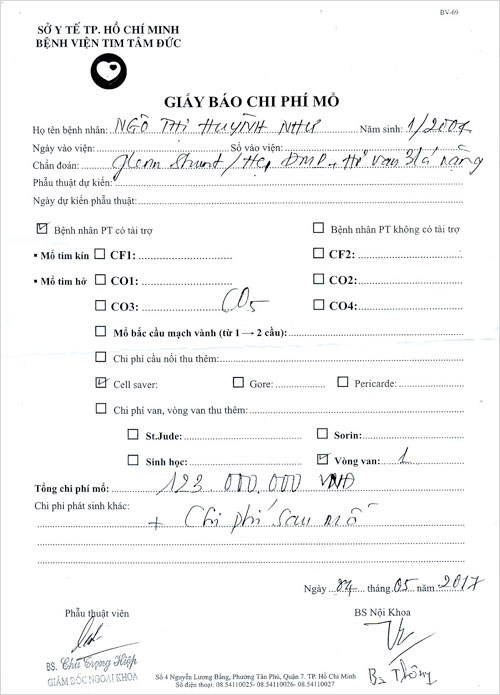 BV-69
SỞ Y TẾ TP. HỒ CHÍ MINH
BỆNH VIỆN TIM TÂM ĐỨC
GIẤY BÁO CHI PHÍ MỔ
Họ tên bệnh nhân: NGÔ THỊ HUỲNH NHƯ Năm sinh: 1/2007
Ngày vào viện: Số vào viện:
Chẩn đoán: Glenn Shunt / Hẹp ĐMP + Hở van 3 lá nặng
Phẫu thuật dự kiến:
Ngày dự kiến phẫu thuật:
Bệnh nhân PT có tài trợ Bệnh nhân PT không có tài trợ
▪ Mổ tim kín CF1: CF2:
▪ Mổ tim hở CO1: CO2:
CO3: CO5 CO4:
Mổ bắc cầu mạch vành (từ 1 → 2 cầu):
Chi phí cầu nối thu thêm:
Cell saver: Gore: Pericarde:
Chi phí van, vòng van thu thêm:
St.Jude: Sorin:
Sinh học: Vòng van: 1
Tổng chi phí mổ: 123 000.000 VNĐ
Chi phí phát sinh khác:
+ Chi phí sau mổ
Ngày 04 tháng 05 năm 2017
Phẫu thuật viên BS Nội Khoa
BS. Chu Trọng Hiệp
GIÁM ĐỐC NGOẠI KHOA
Bs Thông
Số 4 Nguyễn Lương Bằng, Phường Tân Phú, Quận 7. TP. Hồ Chí Minh
Số điện thoại: 08.54110025- 08.54110026- 08.54110027